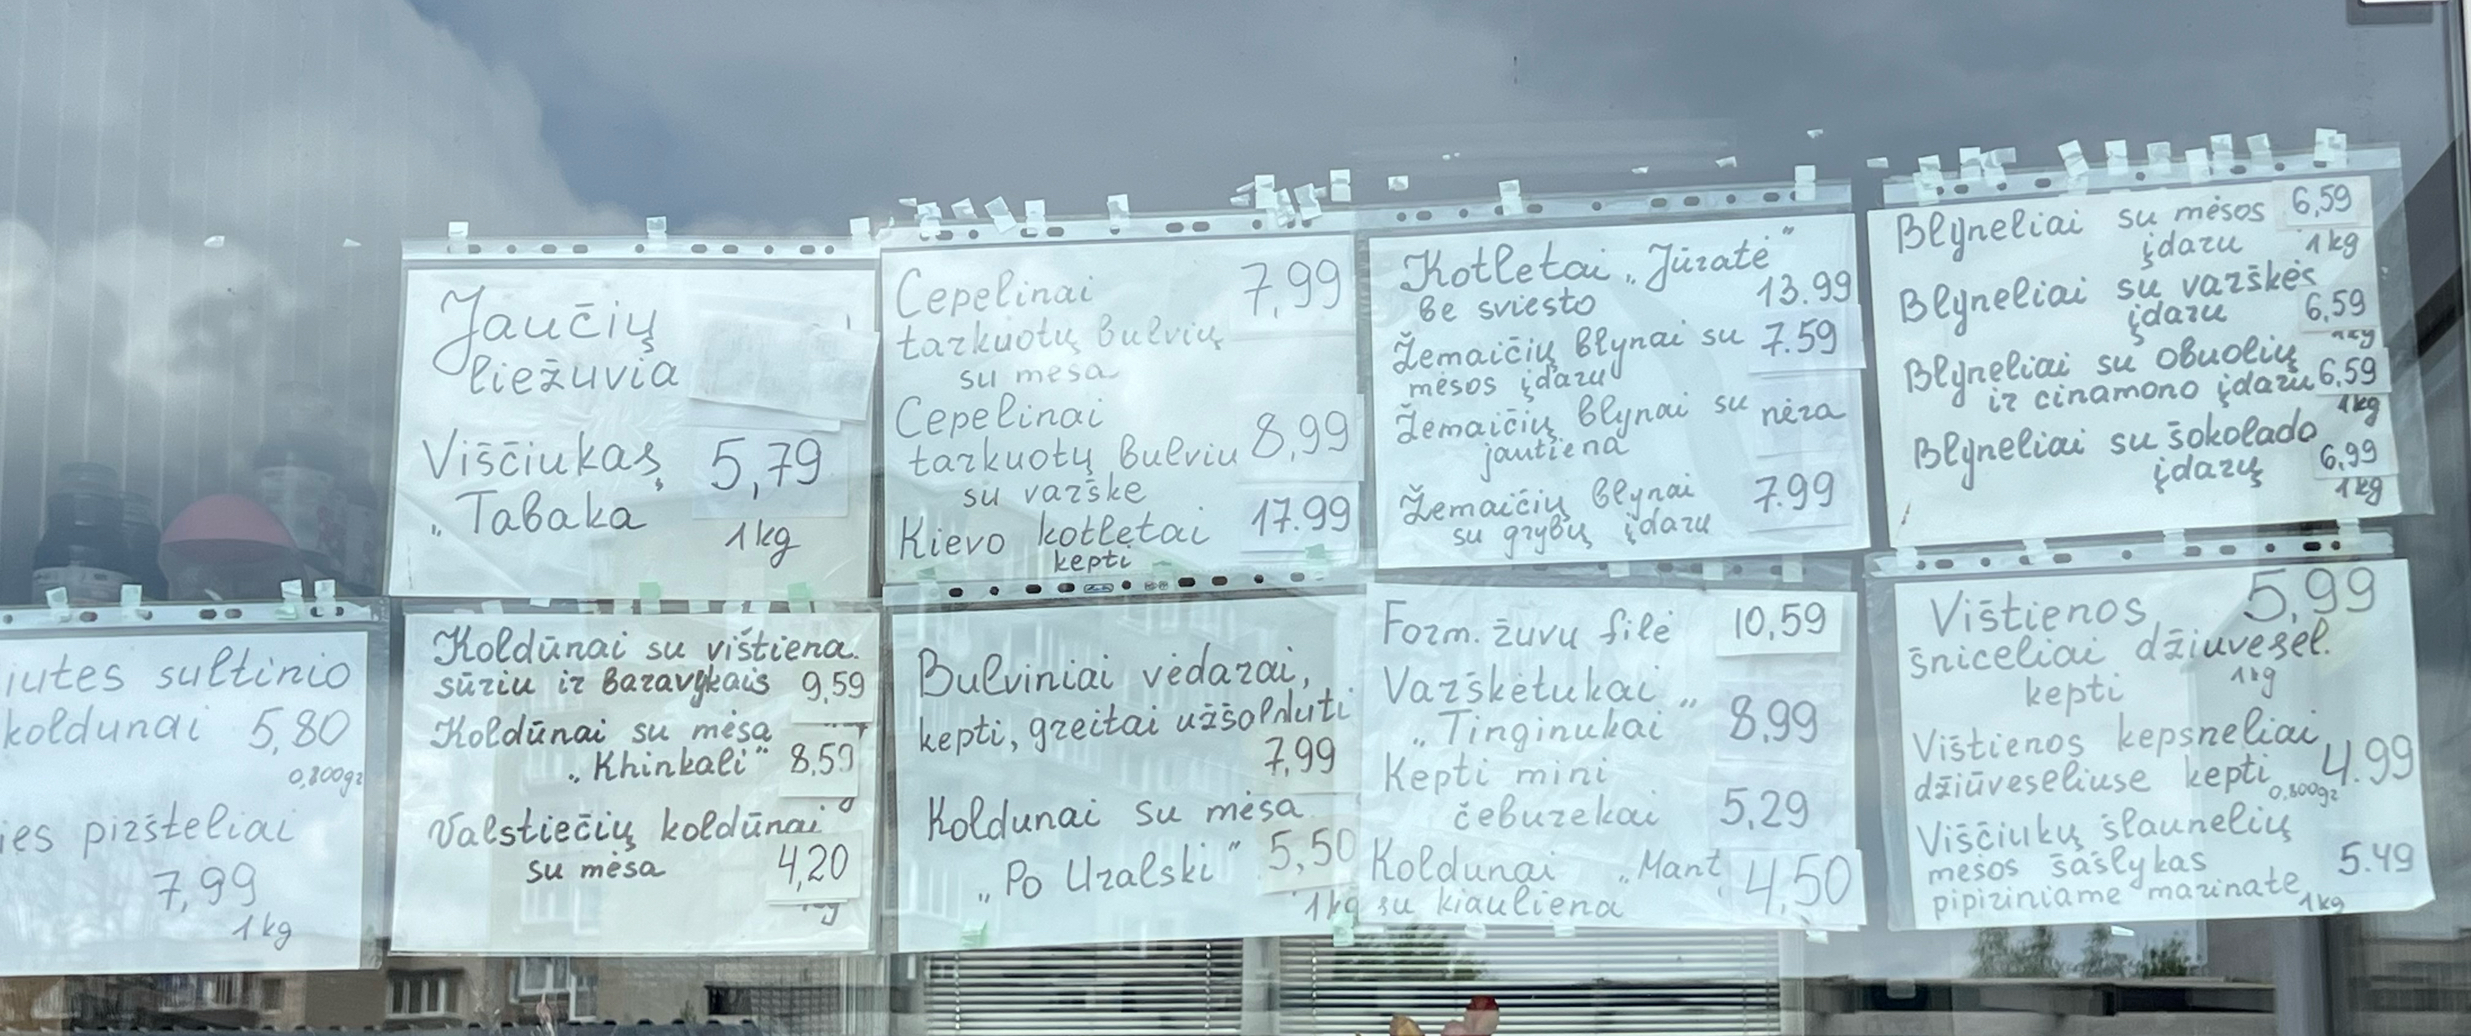 Jaučių
liežuvia
Viščiukas 5,79
„Tabaka
1kg
Cepelinai 7,99
tarkuotų bulvių
su mėsa
Cepelinai
tarkuotų bulviu 8,99
su varške
Kievo kotletai 17.99
kepti
Kotletai „Jūratė"
be sviesto 13.99
Žemaičių blynai su 7.59
mėsos įdaru
Žemaičių blynai su nėra
jautiena
Žemaičių blynai 7.99
su grybų įdaru
Blyneliai su mėsos 6,59
įdaru 1kg
Blyneliai su varškės
įdaru 6,59
1kg
Blyneliai su obuolių
ir cinamono įdaru 6,59
1kg
Blyneliai su šokolado
įdarų 6,99
1kg
iutes sultinio
koldunai 5,80
0,800gr
ies piršteliai
7,99
1kg
Koldūnai su vištiena
sūriu ir baravykais 9,59
Koldūnai su mėsa
„Khinkali" 8,59
Valstiečių koldūnai
su mėsa 4,20
Bulviniai vėdarai,
kepti, greitai užšolduti
7,99
Koldunai su mėsa
„Po Uralski" 5,50
1kg
Form. žuvu filė 10,59
Varškėtukai
„Tinginukai" 8,99
Kepti mini
čeburekai 5,29
Koldunai „Mant
su kiauliena 4,50
Vištienos 5,99
šniceliai džiuvesel.
kepti 1kg
Vištienos kepsneliai
džiūveseliuse kepti 4.99
0,800gr
Viščiukų šlaunelių
mėsos šašlykas 5.49
pipiriniame marinate 1kg